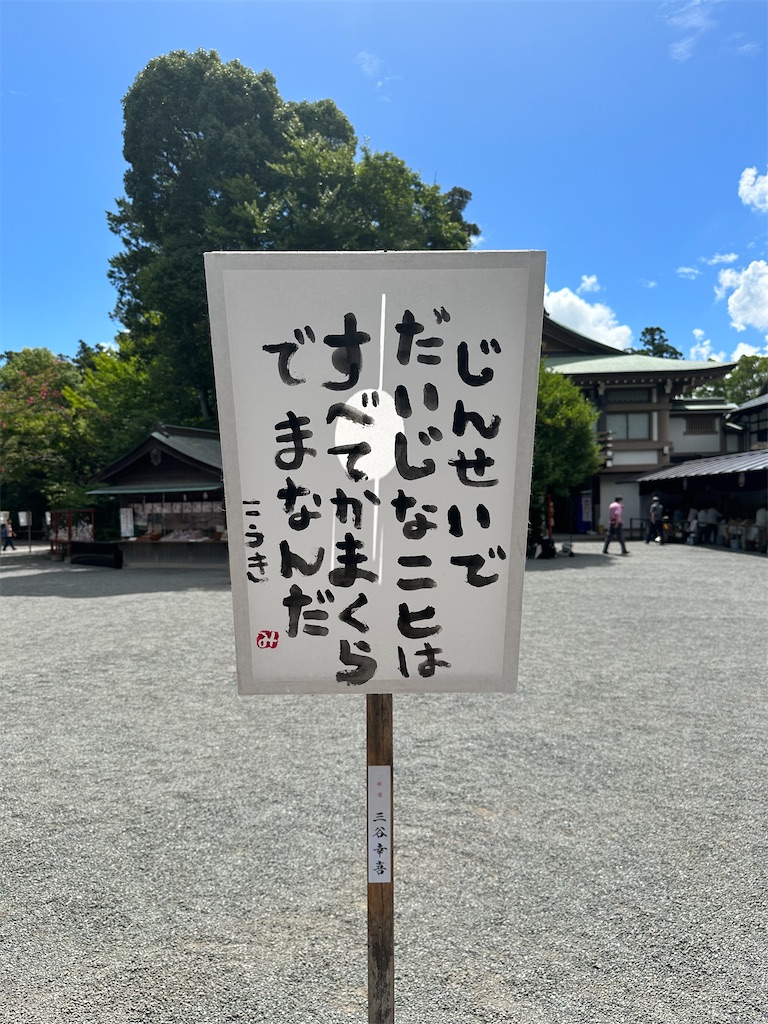 じんせいで
だいじなことは
すべてかまくら
でまなんだ
こうき
み
三谷幸喜